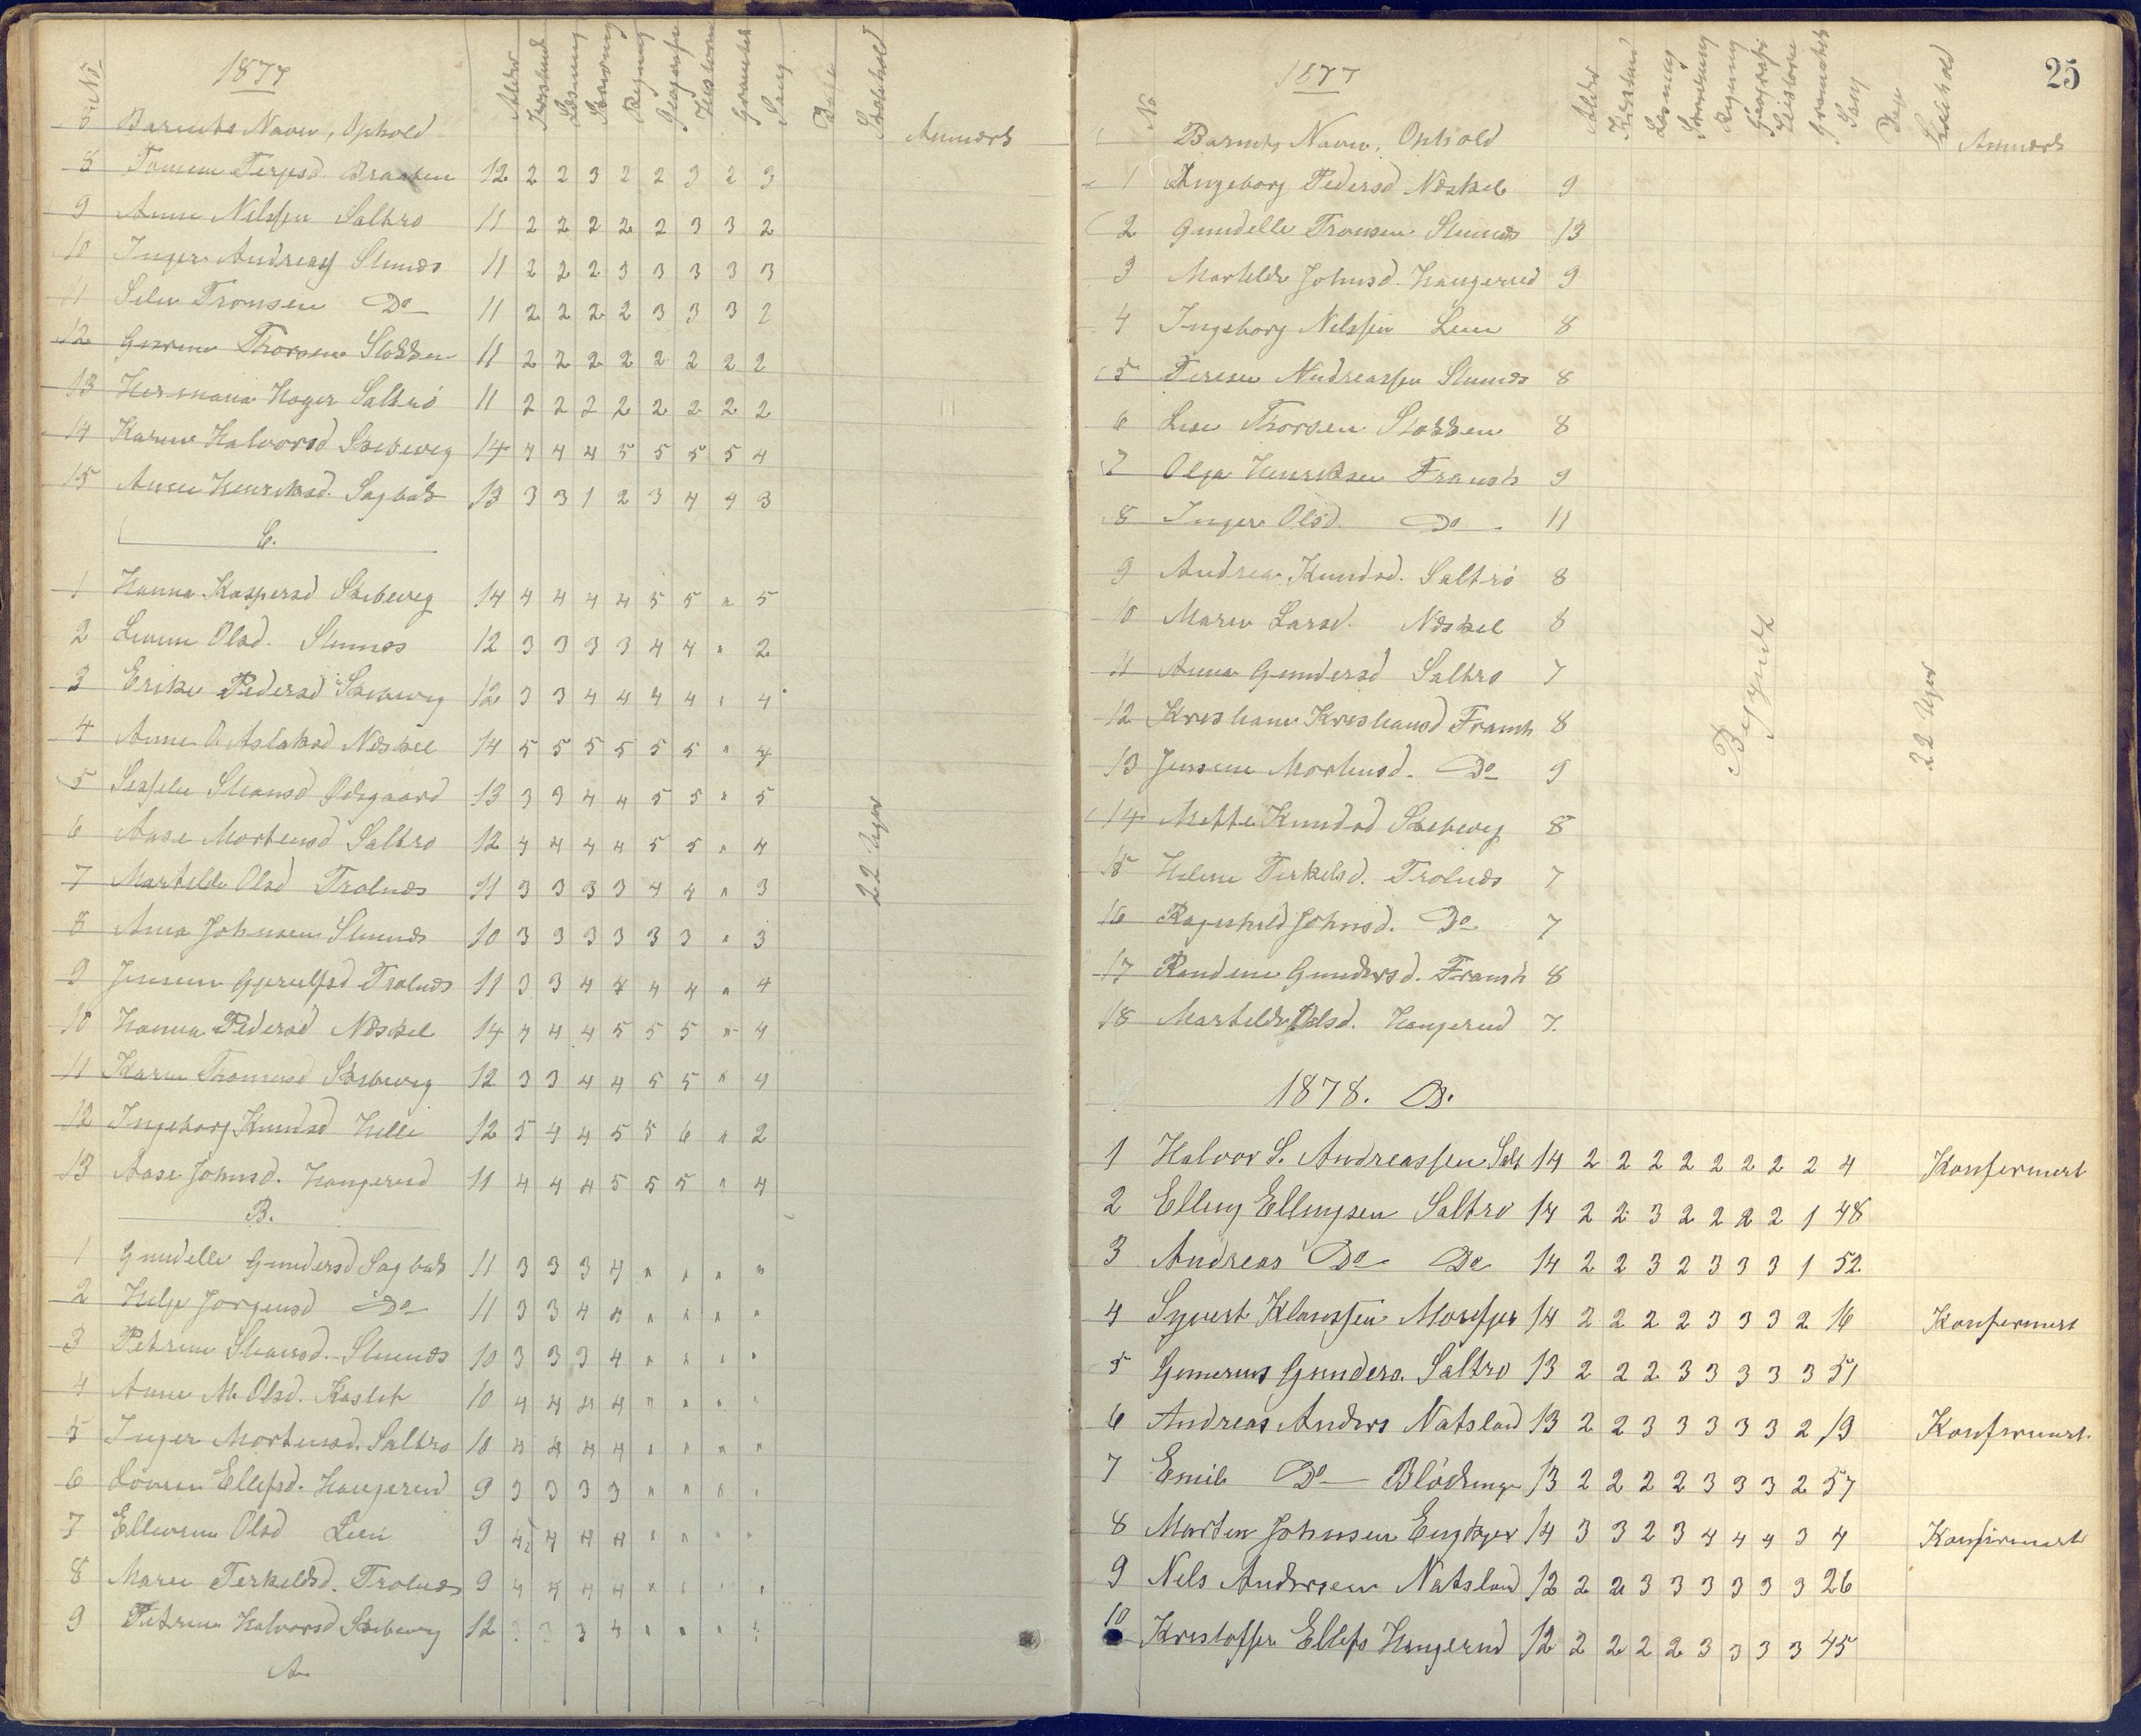 1877
No Barnets Navn, Ophold Alder Kristend Læsning Skrivning Regning Geografi Historie Gramatik Sang Dage Skolehold Anmærk
8 Tomine Terjesd. Braaten 12 2 2 3 2 2 3 2 3
9 Anne Nilssen Saltrø 11 2 2 2 2 2 3 3 2
10 Inger Andreass Slunæs 11 2 2 2 3 3 3 3 3
11 Selin Tronsen Do 11 2 2 2 2 3 3 3 2
12 Gurine Thorsen Stokken 11 2 2 2 2 2 2 2 2
13 Hermana Hoger Saltrø 11 2 2 2 2 2 2 2 2
14 Karine Halvorsd Skibevig 14 4 4 4 5 5 5 5 4
15 Anne Henriksd. Sagbak 13 3 3 1 2 3 4 4 3
C.
1 Hanna Kaspersd Skibevig 14 4 4 4 4 5 5 " 5
2 Lovine Olsd. Slunæs 12 3 3 3 3 4 4 " 2
3 Erike Pedersd Skibevig 12 3 3 4 4 4 4 " 4
4 Anne O Aslaksd Næskil 14 5 5 5 5 5 5 " 4
5 Ødegaard 13 3 3 4 4 5 5 " 5
6 Aase Mortensd Saltrø 12 4 4 4 4 5 5 " 4
7 Martilde Olsd Trolnæs 11 3 3 3 3 4 4 " 3
8 Anna Johnsen Slunæs 10 3 3 3 3 3 3 " 3
9 Jensine Gjerulfsd Trolnæs 11 3 3 4 4 4 4 " 4
10 Hanna Pedersd Næskel 14 4 4 4 5 5 5 " 4
11 Karen Thomesd Skibevig 12 3 3 4 4 5 5 " 4
12 Ingeborg Knudsd Helle 12 5 4 4 5 5 6 " 2
13 Aase Johnsd. Haugerud 11 4 4 4 5 5 5 " 4
22 Uger
B.
1 Gundelle Gundersd Sagbak 11 3 3 3 4 " " " "
2 Helje Jørgensd Do 11 3 3 4 4 " " " "
3 Petrine Stiansd. Slunæs 10 3 3 3 4 " " " "
4 Anne M. Olsd. Kaslet 10 4 4 4 4 " " " "
5 Inger Mortensd. Saltrø 10 4 4 4 4 " " " "
6 Lovise Ellefsd. Haugerud 9 3 3 3 3 " " " "
7 Ellevine Olsd Lien 9 4 4 4 4 " " " "
8 Maren Terkelsd. Trolnæs 9 4 4 4 4 " " " "
9 Petrine Halvorsd Skibevig 12 3 4 " " "
A
25
1877
No Barnets Navn, Ophold Alder Kristend Læsning Skrivning Regning Geografi Historie Gramatik Sang Dage Skolehold Anmærk
1 Ingeborg Pedersd Næskel 9
2 Gundelle Tronsen Slunæs 13
3 Martilde Johnsd. Haugerud 9
4 Ingeborg Nilssen Lien 8
5 Terese Andreassen Slunæs 8
6 Lise Thorsen Stokken 8
7 Olga Henriksen Framh 9
8 Inger Olsd. Do 11
9 Andrea Knudsd. Saltrø 8
10 Maren Larsd. Næskel 8
11 Anna Gundersd Saltrø 7
12 Kristiane Kristiansd Framh 8
13 Jensine Mortensd. Do 9
14 Mette Knudsd Skibevig 8
15 Helene Terkelsd. Trolnæs 7
16 Ragnhild Johnsd. Do 7
17 Randine Gundersd. Framh 8
18 Martilde Olsd. Haugerud 7.
Begyndt
22 Uger
1878. B.
1 Halvor S. Andreassen Salt 14 2 2 2 2 2 2 2 2 4 Konfirmert
2 Elling Ellingsen Saltrø 14 2 2 3 2 2 2 2 1 48
3 Andreas Do Do 14 2 2 3 2 3 3 3 1 52
4 Syvert Klaussen Morefjer 14 2 2 2 2 3 3 3 2 16 Konfirmert
5 Gunerius Gunders. Saltrø 13 2 2 2 3 3 3 3 3 51
6 Andreas Anders Natsland 13 2 2 3 3 3 3 3 2 19 Konfirmert
7 Emil Do Blødinge 13 2 2 2 2 3 3 3 2 57
8 Martin Johnsen 14 3 3 2 3 4 4 4 3 4 Konfirmert
9 Nels Andersen Natsland 12 2 2 3 3 3 3 3 3 26
10 Kristoffer Ellefs Haugerud 12 2 2 2 2 3 3 3 3 45